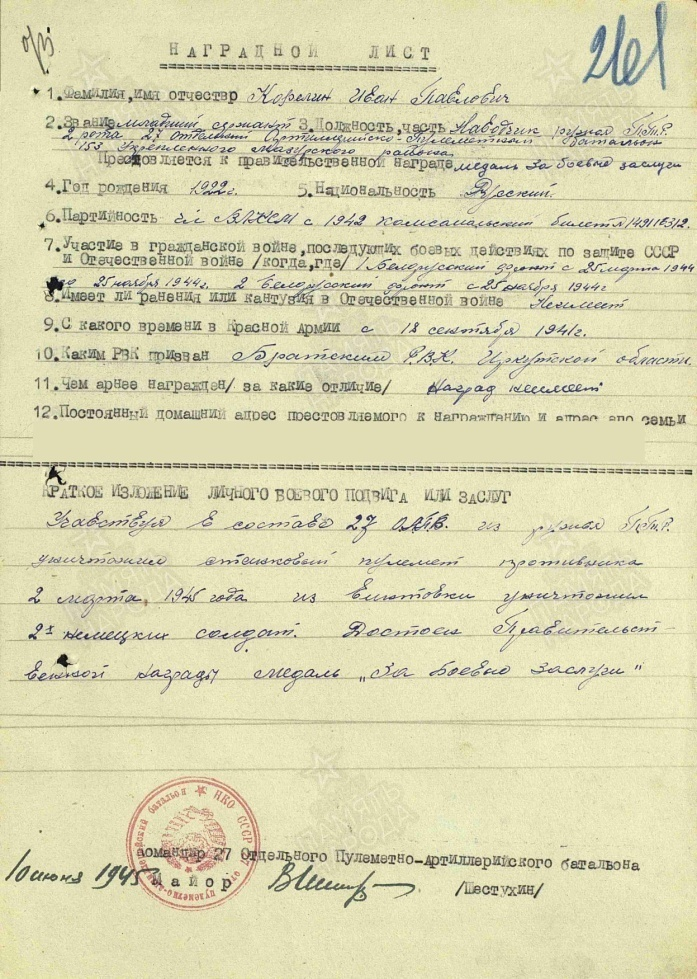 НАГРАДНОЙ ЛИСТ
1. Фамилия,имя отчество Корелин Иван Павлович
2. Звание младший сержант 3. Должность, часть Наводчик ружья П.Т.Р.
2 рота 27 отдельный Артиллерийско-Пулеметный батальон
153 Укрепленного Мазурского района
Престовляется к правительственной награде медаль За боевые заслуги
4. Год рождения 1922г. 5. Национальность Русский.
6. Партийность чл ВЛКСМ с 1942 комсомольский билет
7. Участие в гражданской войне,последующих боевых действиях по защите СССР
и Отечественной войне /когда,где/ 1 Белорусский фронт с 25 марта 1944
по 25 ноября 1944г. 2 Белорусский фронт с 25 ноября 1944г
8. Имеет ли ранения или кантузия в Отечественной войне Неимеет
9. С какого времени в Красной Армии с 18 сентября 1941г.
10. Каким РВК призван Братским Р.В.К. Иркутской области.
11. Чем арнее награжден/ за какие отличие/ Наград неимеет
12. Постоянный домашний адрес престовляемого к награжданию и адрес его семьи
КРАТКОЕ ИЗЛОЖЕНИЕ ЛИЧНОГО БОЕВОГО ПОДВИГА ИЛИ ЗАСЛУГ
Учавствуя в составе 27 О.А.П.Б. из ружья П.Т.Р.
уничтожил станковый пулемет противника
2 марта 1945 года из винтовки уничтожил
2х немецких солдат. Достоен Правительст-
венной награды медаль „За боевые заслуги"
командир 27 Отдельного Пулеметно-Артиллерийского батальона
10 июня 1945 майор
/Шестухин/